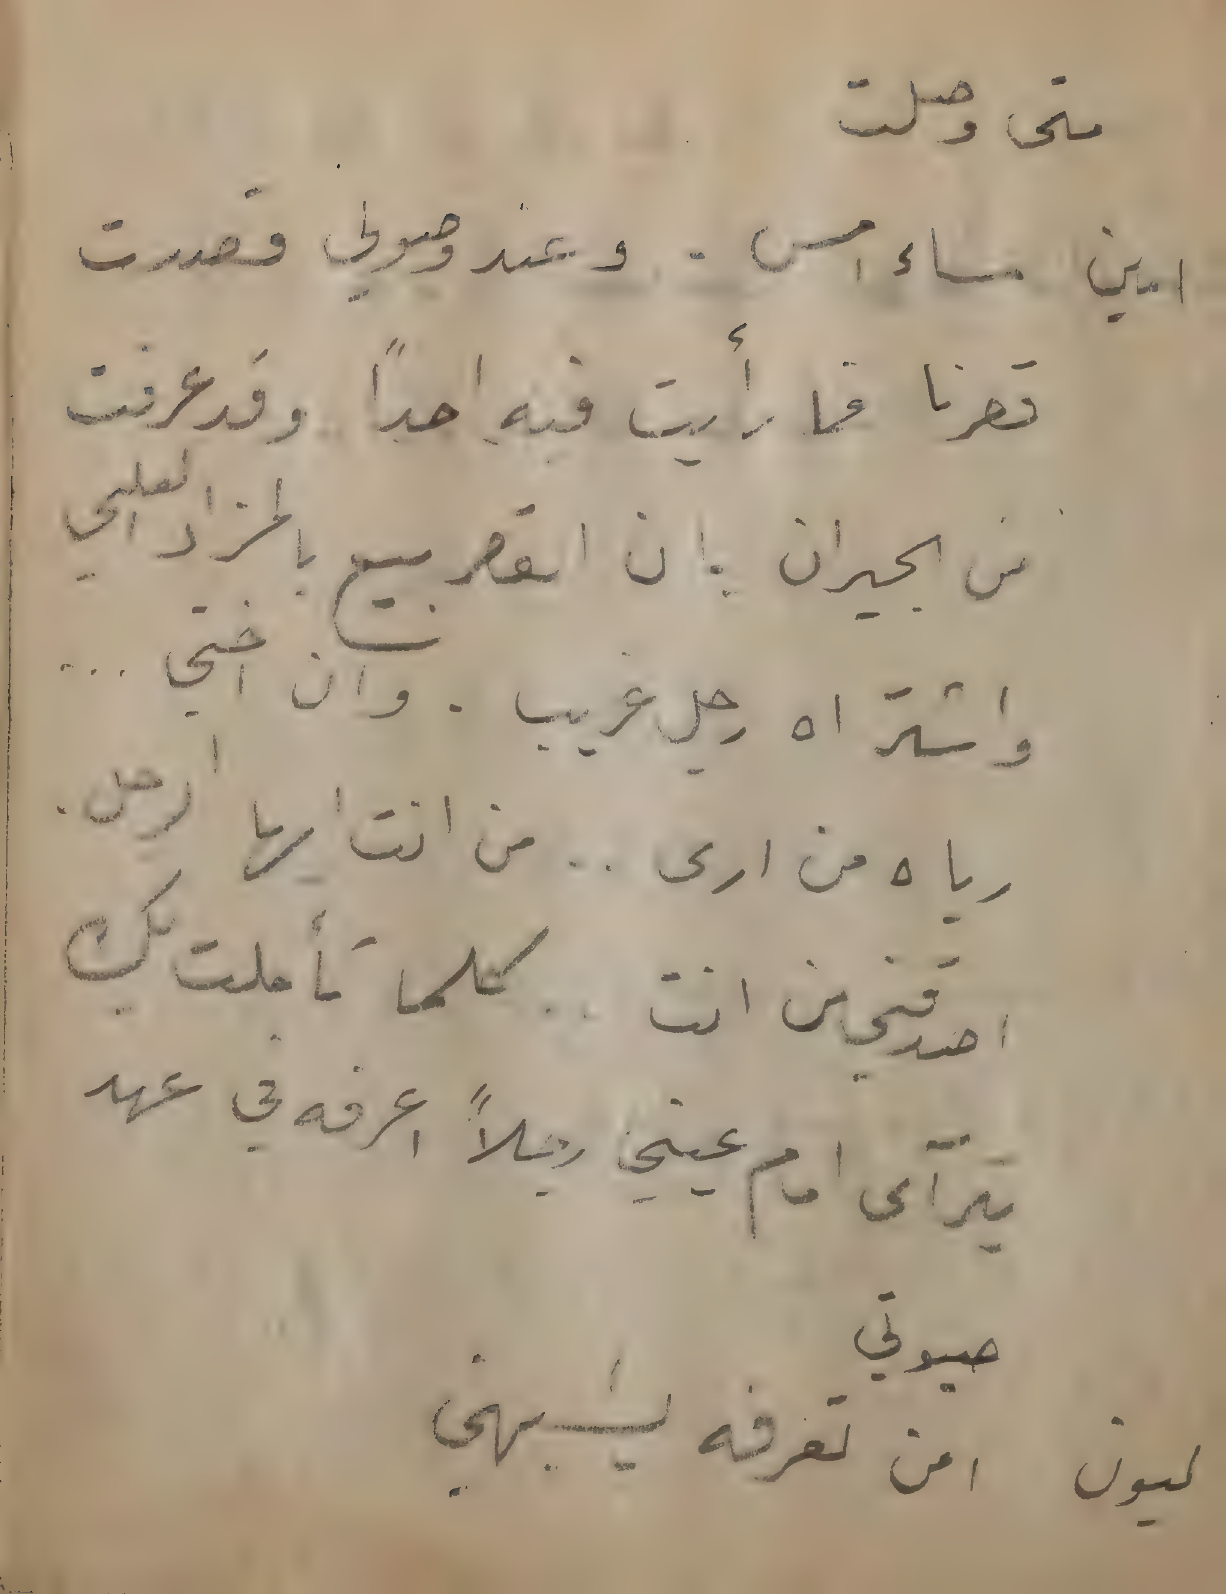 متى وصلت
امين مساء امس . وعند وصولي قصدت
قصرنا فما رأيت فيه احداً وقد عرفت
من الجيران بان القصر بيع بالمزاد العلني
واشتراه رجل غريب . وان اختي ...
رباه من ارى .. من انت ايها الرجل .
اصدقني من انت .. كلما تأملت بك
يترآى امام عيني رجلاً اعرفه في عهد
صبوتي
ليون امن تعرفه يشبهني